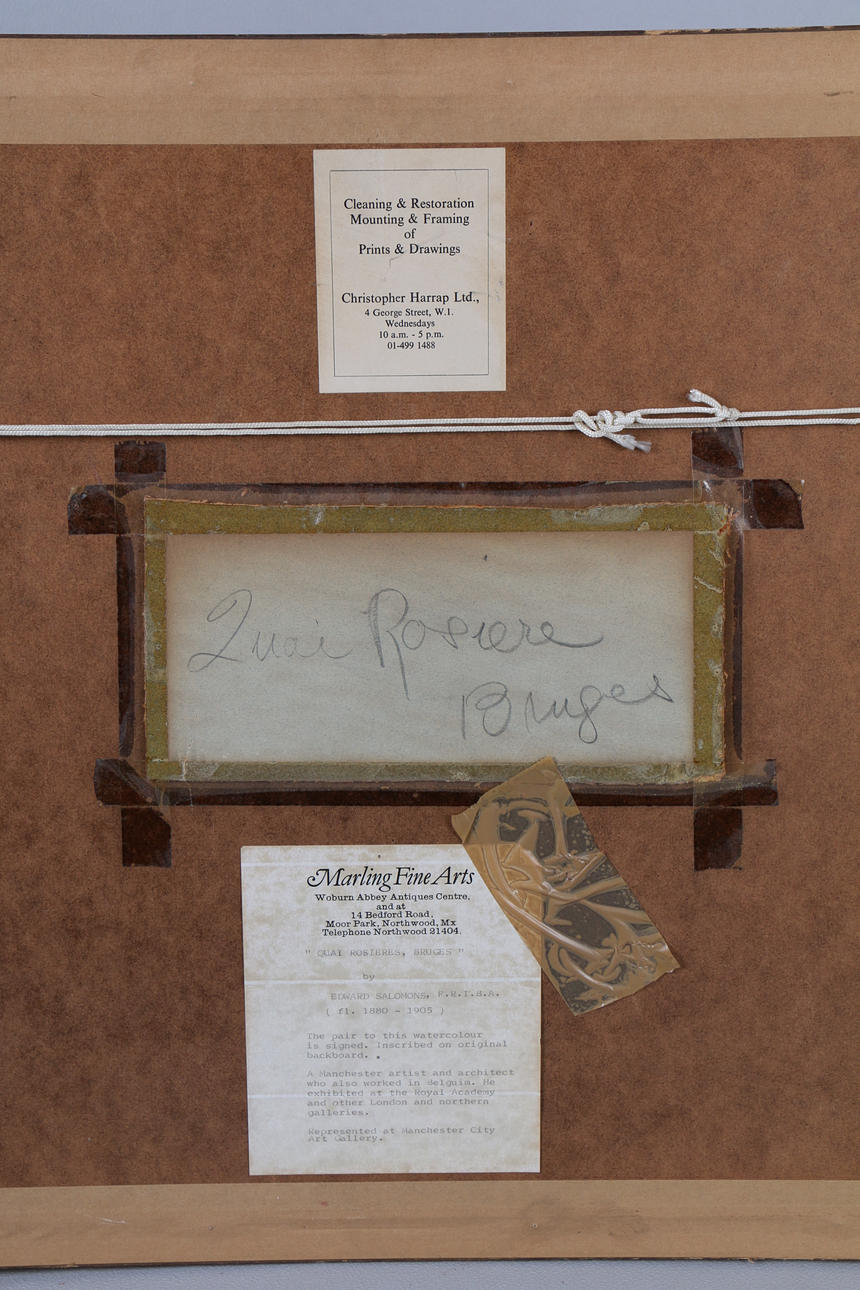 Cleaning & Restoration
Mounting & Framing
of
Prints & Drawings
Christopher Harrap Ltd.,
4 George Street, W.1.
Wednesdays
10 a.m. - 5 p.m.
01-499 1488
Quai Rosiere
Bruges
Marling Fine Arts
Woburn Abbey Antiques Centre,
and at
14 Bedford Road,
Moor Park, Northwood, Mx
Telephone Northwood 21404.
" QUAI ROSIERES, BRUGES "
by
EDWARD SALOMONS, F.R.I.B.A.
( fl. 1880 - 1905 )
The pair to this watercolour
is signed. Inscribed on original
backboard. .
A Manchester artist and architect
who also worked in Belguim. He
exhibited at the Royal Academy
and other London and northern
galleries.
Represented at Manchester City
Art Gallery.